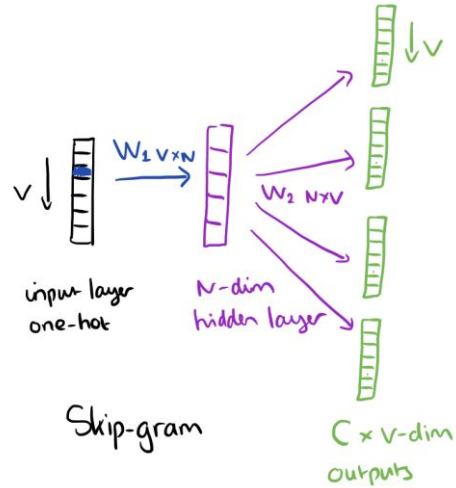 V
W1 V×N
V
W2 N×V
input layer
one-hot
N-dim
hidden layer
Skip-gram
C × V-dim
outputs